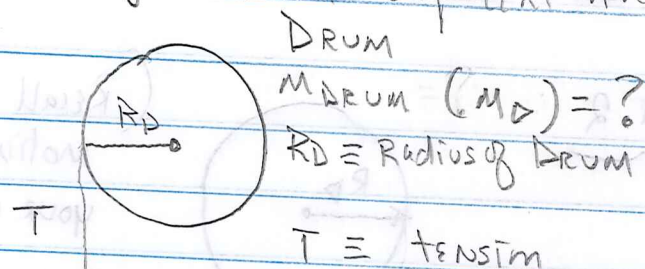 DRUM
M DRUM (MD) = ?
RD
RD ≡ Radius of DRUM
T
T ≡ tensim